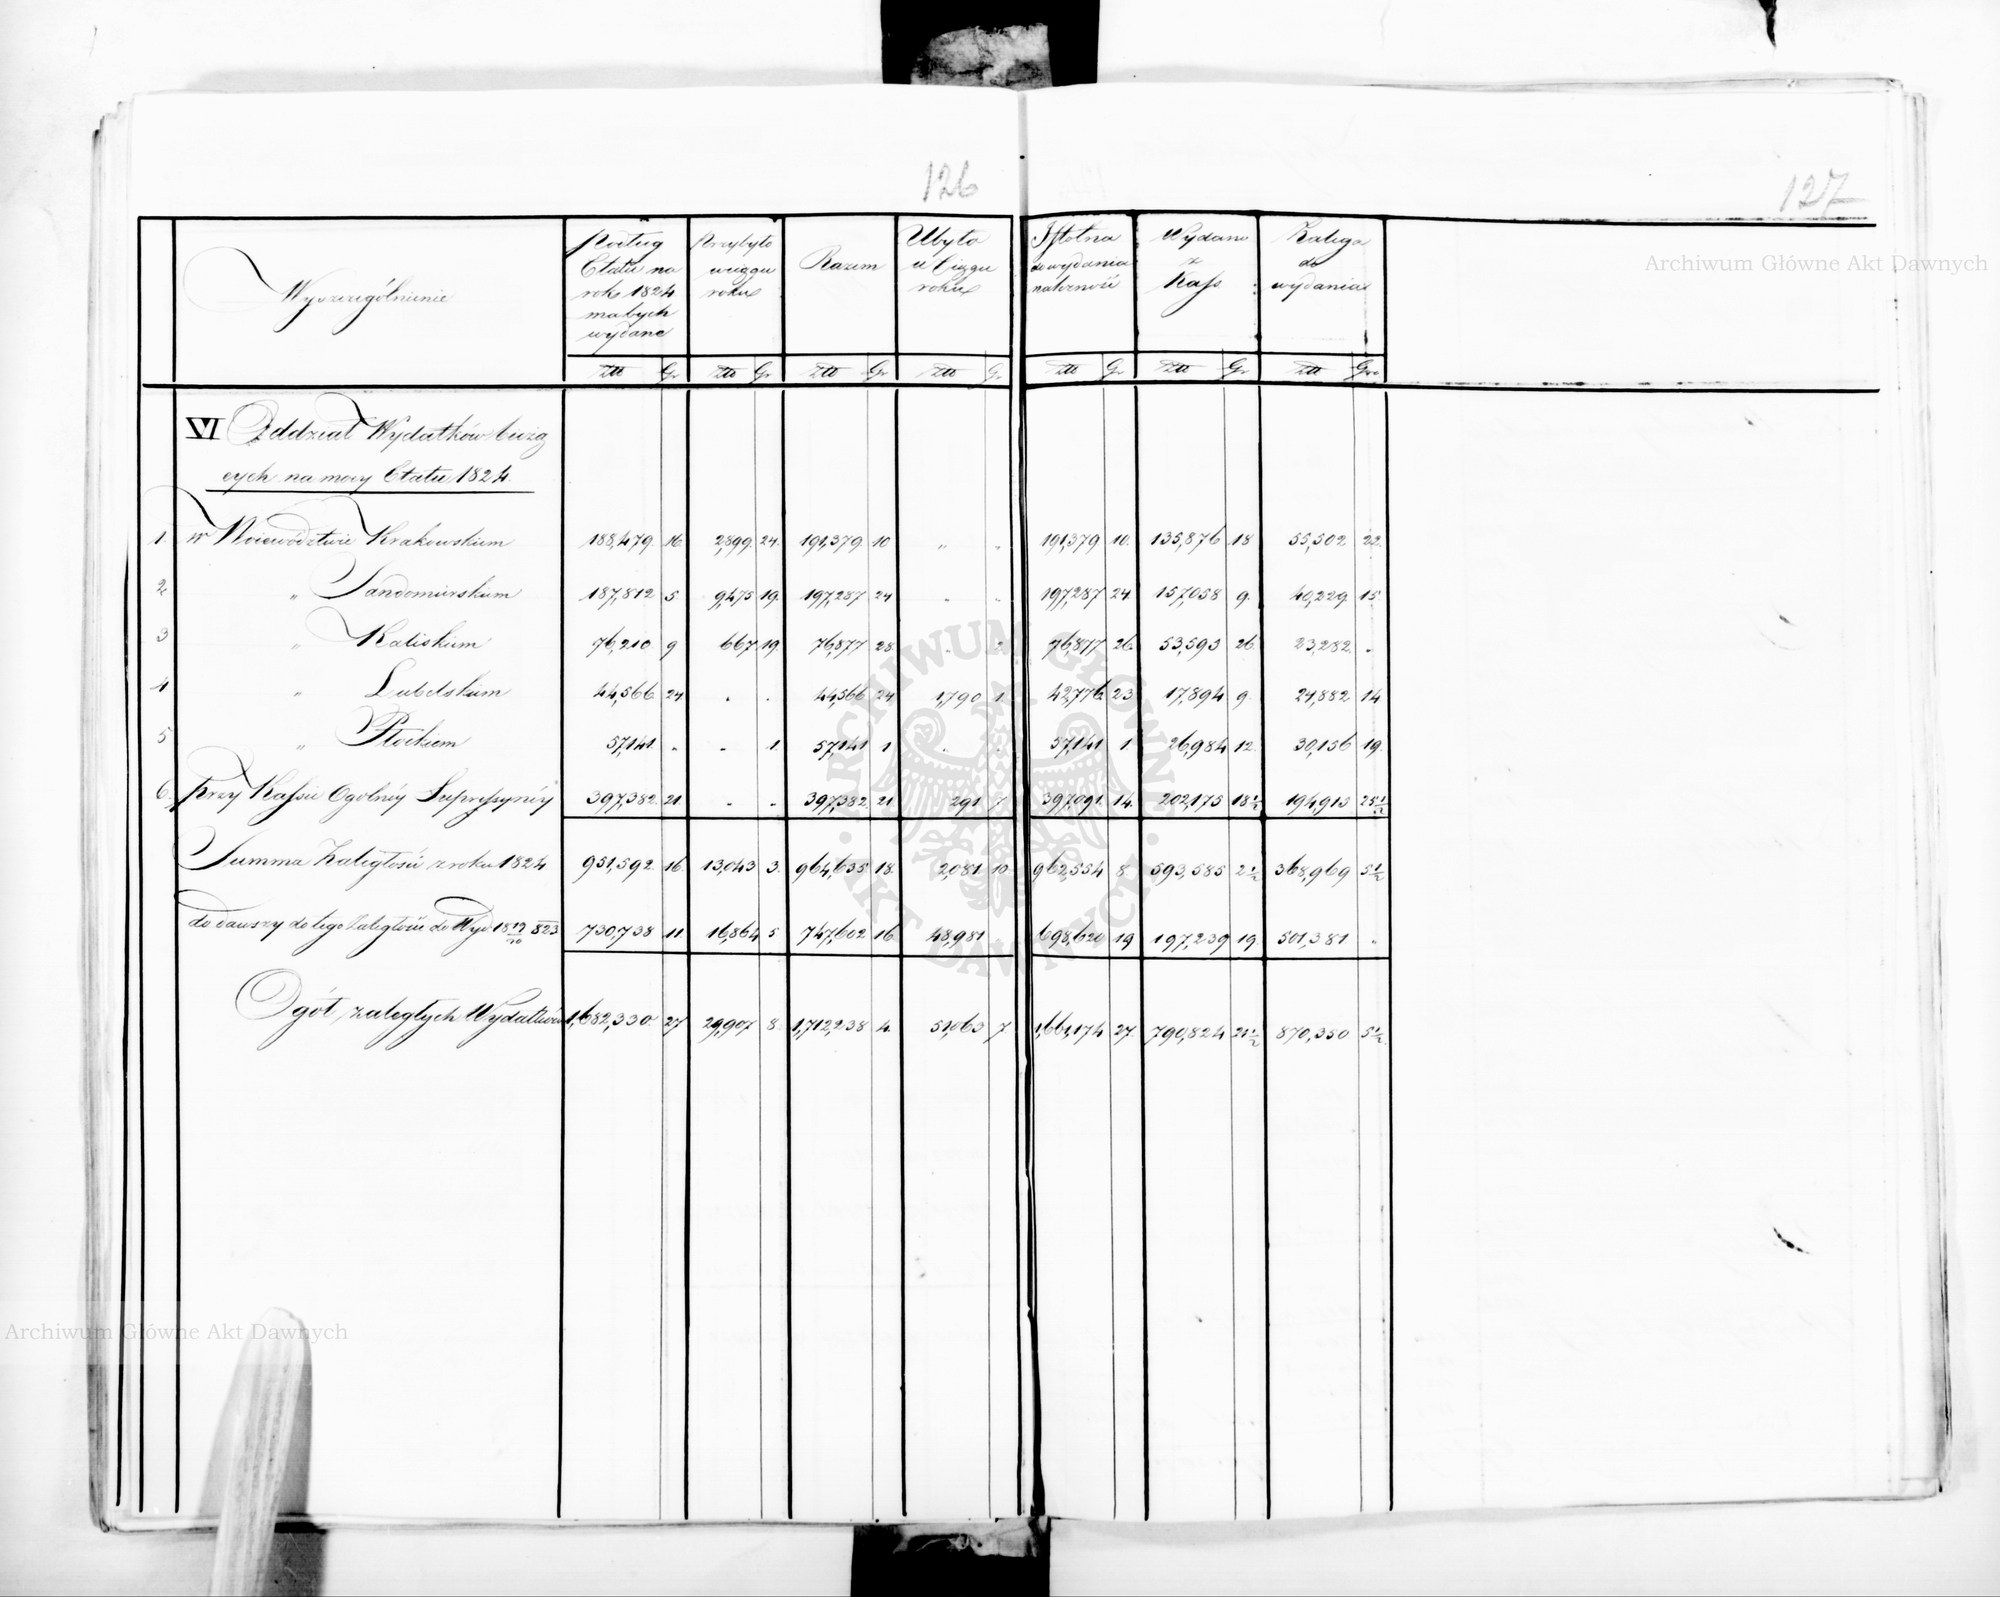 126
127
Wyszczególnienie
Podług Etatu na rok 1824 ma bydź wydane
Przybyło w ciągu roku
Razem
Ubyło w Ciągu roku
Istotna do wydania należność
Wydano z Kass
Zalega do wydania
Złt Gr Złt Gr Złt Gr Złt Gr Złt Gr Złt Gr Złt Gro
VI Oddział Wydatków bieżą
cych na mocy Etatu 1824.
1. w Woiewództwie Krakowskim 188,479. 16. 2,899. 24. 191,379. 10 " " 191,379 10. 135,876 18 55,502 22.
2 " Sandomirskim 187,812 5. 9,475 19. 197,287 24 . . 197,287 24. 157,058 9. 40,229. 15.
3 " Kaliskim 76,210. 9 667 19. 76,877 28. . 2 76,877 26. 53,593 26. 23,282. .
4 " Lubelskim 44,566. 24 . . 44,566 24 1,790 1. 42,776. 23. 17,894 9. 24,882 14
5 " Płockiem 57,141. . . 1. 57,141 1 . . 57,141 1. 26,984 12. 30,156 19.
6. przy Kassie Ogolnéy Supressyinéy 397,382. 21. . . 397,382. 21. 291. 7 397,091. 14. 202,175 18½ 194,915 25½
Summa Zaległości z roku 1824 951,592. 16. 13,043 3. 964,635 18. 2,081. 10 962,554 8. 593,585 2½ 368,969 5½
dodawszy do tego Zaległości do Wyd: 18 19/20 823 730,738 11 16,864 5 747,602 16. 48,981 698,620 19 197,239 19 501,381 "
Ogół zaległych Wydatków 1,682,330. 27 29,907 8. 1,712,238 4. 51,063 7 1,661,174 27. 790,824 21½ 870,350 5½
Archiwum Główne Akt Dawnych
Archiwum Główne Akt Dawnych
ARCHIWUM GŁÓWNE AKT DAWNYCH